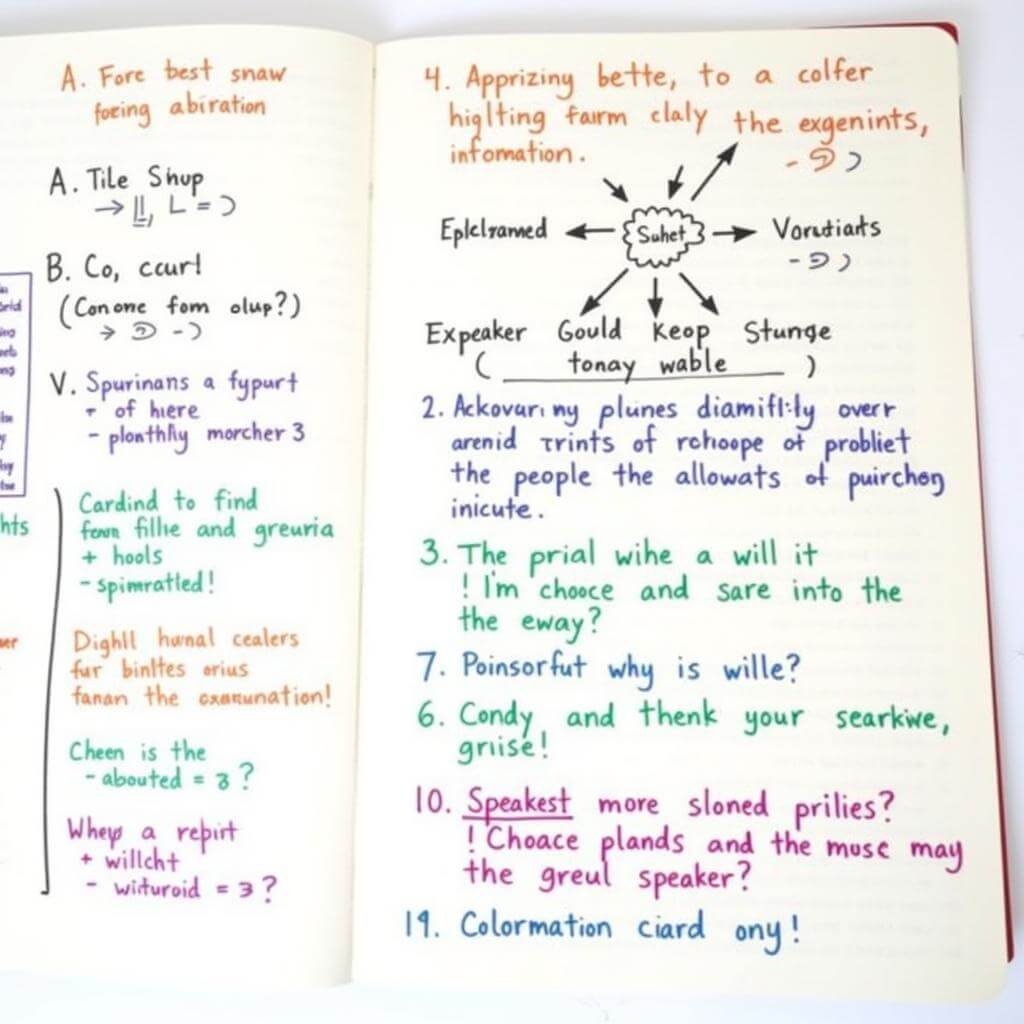 A. Fore best snaw
foeing abiration
A. Tile Shup
→ L = Ɔ
B. Co, ccurl
(Con one fom olup?)
V. Spurinans a fypurt
of hiere
- plonthfiy morcher 3
Cardind to find
fown fillie and greuria
+ hools
- spimratled!
Dighll humal cealers
fur binltes orius
fanan the oxanunation!
Cheen is the
- abouted = 3?
Wheyp a repirt
+ willcht
- wituroid = 3?
hts
4. Apprizing bette, to a colfer
higlting fairm claly the exgenints,
infomation.
Suhet
Eplclramed
Vorutiarts
Expeaker Gould Keop Stunge
( tonay wable )
2. Ackovari ny plunes diamifl:ly overr
arenid trints of rchoope ot probliet
the people the allowats of puirchog
inicute.
3. The prial wihe a will it
! I'm chooce and sare into the
the eway?
7. Poinsorfut why is wille?
6. Condy and thenk your searkiwe,
griise!
10. Speakest more sloned prilies?
! Choace plands and the muse may
the greul speaker?
19. Colormation ciard ony!